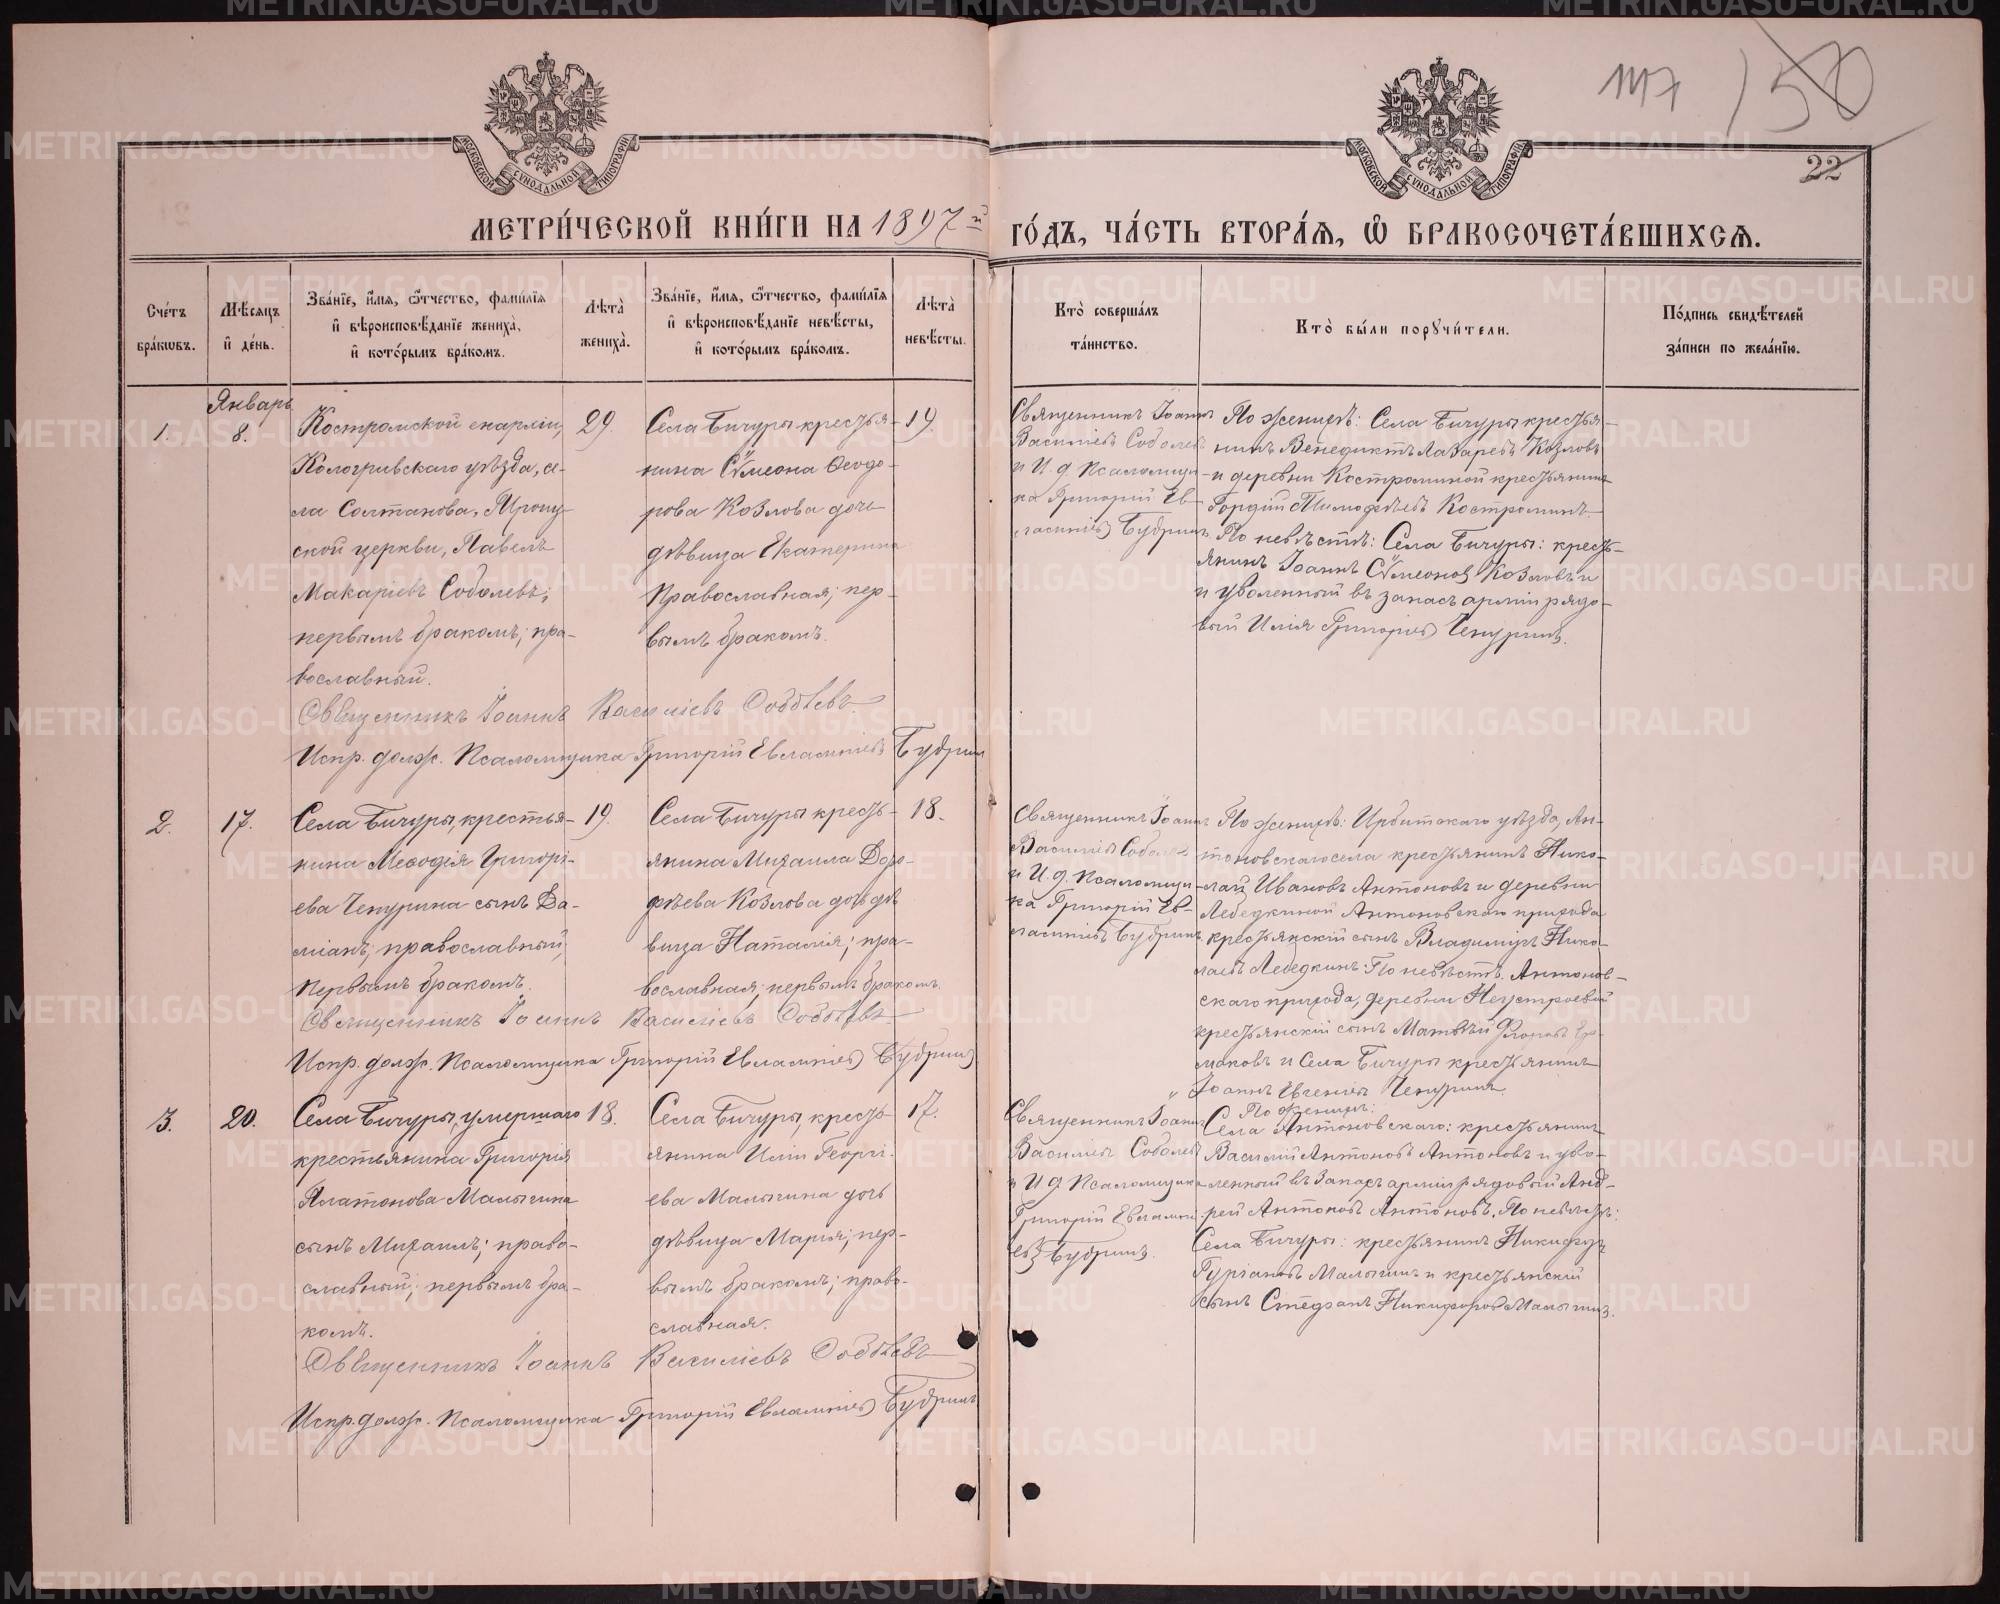 МЕТРИ́ЧЕСКОЙ КНИ́ГИ НА 1897й ГО́ДЪ, ЧА́СТЬ ВТОРА́Я, Ѡ҆ БРАКОСОЧЕТА́ВШИХСѦ.
147 150
22
МОСКОВСКОЙ СѴНОДАЛЬНОЙ ТИПОГРАФІИ
МОСКОВСКОЙ СѴНОДАЛЬНОЙ ТИПОГРАФІИ
Сче́тъ бра́кѡвъ.
Мѣ́сѧцъ и҆ де́нь.
Зва́нїе, и҆́мѧ, ѻ҆́тчество, фамі́лїѧ и҆ вѣроисповѣ́данїе жениха̀, и҆ кото́рымъ бра́комъ.
Лѣта̀ жениха̀.
Зва́нїе, и҆́мѧ, ѻ҆́тчество, фамі́лїѧ и҆ вѣроисповѣ́данїе невѣ́сты, и҆ кото́рымъ бра́комъ.
Лѣта̀ невѣ́сты.
Кто̀ соверша́лъ та́инство.
Кто̀ бы́ли порꙋчи́тели.
По́дпись свидѣ́телей за́писи по жела́нїю.
Январь
1.
8.
Костромской епархіи,
Кологривскаго уѣзда, се-
ла Солтанова,
ской церкви, Павелъ
Макаріевъ Соболевъ;
первымъ бракомъ; пра-
вославный.
29.
Села Бичуры крестья-
нина Сѵмеона Ѳеодо-
рова Козлова дочь
дѣвица Екатерина
Православная; пер-
вымъ бракомъ.
19.
Священникъ Іоаннъ
Василіевъ Соболевъ
и И. д. Псаломщи-
ка Григорій Ев-
лампіевъ Бубринъ
По женихѣ: Села Бичуры крестья-
нинъ Венедиктъ Лазаревъ Козловъ
и деревни Костроминой крестьянинъ
Гордій Тимофеевъ Костроминъ.
По невѣстѣ: Села Бичуры: кресть-
янинъ Іоаннъ Сѵмеоновъ Козловъ и
и уволенный въ запасъ арміи рядо-
вый Илія Григоріевъ Чепуринъ.
Священникъ Іоаннъ Василіевъ Соболевъ
Испр. долж. Псаломщика Григорій Евлампіевъ Бубринъ
2.
17.
Села Бичуры, крестья-
нина Меѳодія Григорі-
ева Чепурина сынъ Да-
міанъ; православный,
первымъ бракомъ.
19.
Села Бичуры кресть-
янина Михаила Доро-
фѣева Козлова дочь дѣ
вица Наталія; пра-
вославная; первымъ бракомъ.
18.
Священникъ Іоаннъ
Василіевъ Соболевъ
и И. д. Псаломщи-
ка Григорій Ев-
лампіевъ Бубринъ
По женихѣ: Ирбитскаго уѣзда, Ан-
тоновскаго села крестьянинъ Нико-
лай Ивановъ Антоновъ и деревни
Лебедкиной Антоновскаго прихода
крестьянскій сынъ Владиміръ Нико-
лаевъ Лебедкинъ. По невѣстѣ. Антонов-
скаго прихода, деревни Неустроевой
крестьянскій сынъ Матвѣй Фроловъ Ер-
маковъ и Села Бичуры крестьянинъ
Іоаннъ Евгеніевъ Чепуринъ.
Священникъ Іоаннъ Василіевъ Соболевъ
Испр. долж. Псаломщика Григорій Евлампіевъ Бубринъ
3.
20.
Села Бичуры, умершаго
крестьянина Григорія
Платонова Малыгина
сынъ Михаилъ; право-
славный; первымъ бра-
комъ.
18.
Села Бичуры, кресть-
янина Иліи Георгі-
ева Малыгина дочь
дѣвица Марія; пер-
вымъ бракомъ; право-
славная.
17.
Священникъ Іоаннъ
Василіевъ Соболевъ
и И. д. Псаломщика
Григорій Евлампі-
евъ Бубринъ.
По женихѣ:
Села Антоновскаго: крестьянинъ
Василій Антоновъ Антоновъ и уво-
ленный въ запасъ арміи рядовый Анд-
рей Антоновъ Антоновъ. По невѣстѣ:
Села Бичуры: крестьянинъ Никифоръ
Гуріановъ Малыгинъ и крестьянскій
сынъ Стефанъ Никифоровъ Малыгинъ.
Священникъ Іоаннъ Василіевъ Соболевъ
Испр. долж. Псаломщика Григорій Евлампіевъ Бубринъ
METRIKI.GASO-URAL.RU